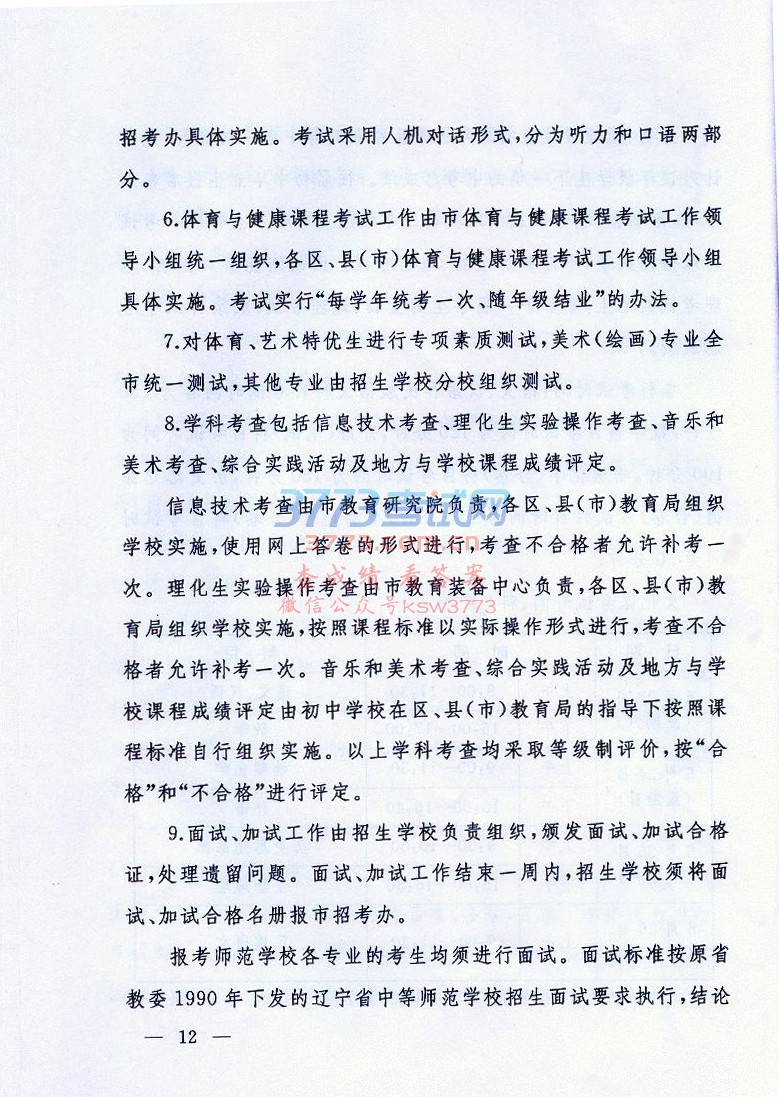 招考办具体实施。考试采用人机对话形式,分为听力和口语两部
分。
6.体育与健康课程考试工作由市体育与健康课程考试工作领
导小组统一组织,各区、县(市)体育与健康课程考试工作领导小组
具体实施。考试实行“每学年统考一次、随年级结业”的办法。
7.对体育、艺术特优生进行专项素质测试,美术(绘画)专业全
市统一测试,其他专业由招生学校分校组织测试。
8.学科考查包括信息技术考查、理化生实验操作考查、音乐和
美术考查、综合实践活动及地方与学校课程成绩评定。
信息技术考查由市教育研究院负责,各区、县(市)教育局组织
学校实施,使用网上答卷的形式进行,考查不合格者允许补考一
次。理化生实验操作考查由市教育装备中心负责,各区、县(市)教
育局组织学校实施,按照课程标准以实际操作形式进行,考查不合
格者允许补考一次。音乐和美术考查、综合实践活动及地方与学
校课程成绩评定由初中学校在区、县(市)教育局的指导下按照课
程标准自行组织实施。以上学科考查均采取等级制评价,按“合
格”和“不合格”进行评定。
9.面试、加试工作由招生学校负责组织,颁发面试、加试合格
证,处理遗留问题。面试、加试工作结束一周内,招生学校须将面
试、加试合格名册报市招考办。
报考师范学校各专业的考生均须进行面试。面试标准按原省
教委1990年下发的辽宁省中等师范学校招生面试要求执行,结论
— 12 —
3773考试网
3773.com.cn
查成绩 看答案
微信公众号ksw3773